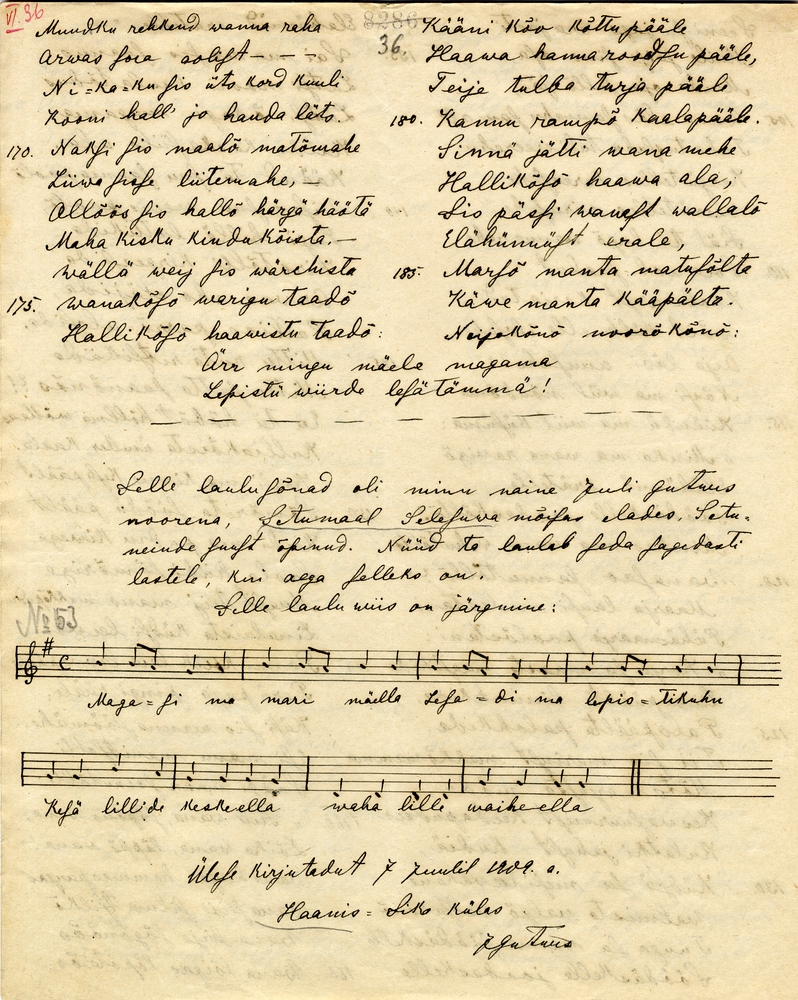 VI. 36
8286
36.
Mundku rehkend wanna raha
Arwas sora solist — — —
Ni=ka=ku sis üts kord kuuli
Kooni hall' jo hauda läts.
170. Naksi sis maalõ matõmahe
Liiwa sisse liitemahe, —
Ollõõs sis hallõ härgä häötä
Maha kisku kindukõista. —
wällä weij sis wärehista
175. wanakõsõ warigu taadõ
Hallikõsõ haawistu taadõ:
Kääni kõo kõttu pääle
Haawa hanna roodsu pääle,
Teije tulba turja pääle
180. Kannu rampõ kaalapääle.
Sinnä jätti wana mehe
Hallikõsõ haawa ala,
Sis pässi wanast wallalõ
Elähünnüst erale,
185. Marsõ manta matusõlta
Käwe manta kääpältä.
Neijokõnõ noorõkõnõ:
Ärr mingu mäele magama
Lepistü wiirde lesätämmä!
Selle laulu sõnad oli minu naine Juli Gutues
noorena, Setumaal Selesuwa mõisas elades, Setu=
neinde suust õpinud. Nüüd ta laulab seda sagedasti
lastele, kui aega selleks on.
Selle laulu wiis on järgmine:
№ 53
Maga=si ma mari mäella Lesa=di ma lepis=tikuhu
Kesä lillide keskeella waha lille waiheella
Ülese kirjutadut 7 Juulil 1909. a.
Haanis= Siko külas
J Gutues